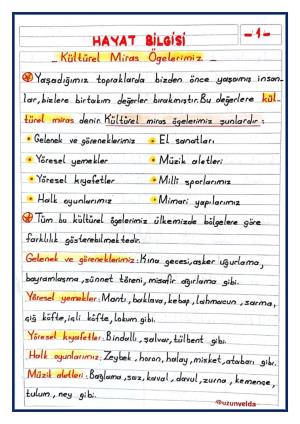 HAYAT BİLGİSİ
- 1 -
- Kültürel Miras Ögelerimiz -
Yaşadığımız topraklarda bizden önce yaşamış insan-
lar, bizlere birtakım değerler bırakmıştır. Bu değerlere kül-
türel miras denir. Kültürel miras ögelerimiz şunlardır:
Gelenek ve göreneklerimiz • El sanatları
Yöresel yemekler • Müzik aletleri
Yöresel kıyafetler • Milli sporlarımız
Halk oyunlarımız • Mimari yapılarımız
Tüm bu kültürel ögelerimiz ülkemizde bölgelere göre
farklılık gösterebilmektedir.
Gelenek ve göreneklerimiz: Kına gecesi, asker uğurlama,
bayramlaşma, sünnet töreni, misafir ağırlama gibi.
Yöresel yemekler: Mantı, baklava, kebap, lahmacun, sarma,
çiğ köfte, içli köfte, lokum gibi.
Yöresel kıyafetler: Bindallı, şalvar, tülbent gibi.
Halk oyunlarımız: Zeybek, horon, halay, misket, atabarı gibi.
Müzik aletleri: Bağlama, saz, kaval, davul, zurna, kemençe,
tulum, ney gibi.
@uzunvelda